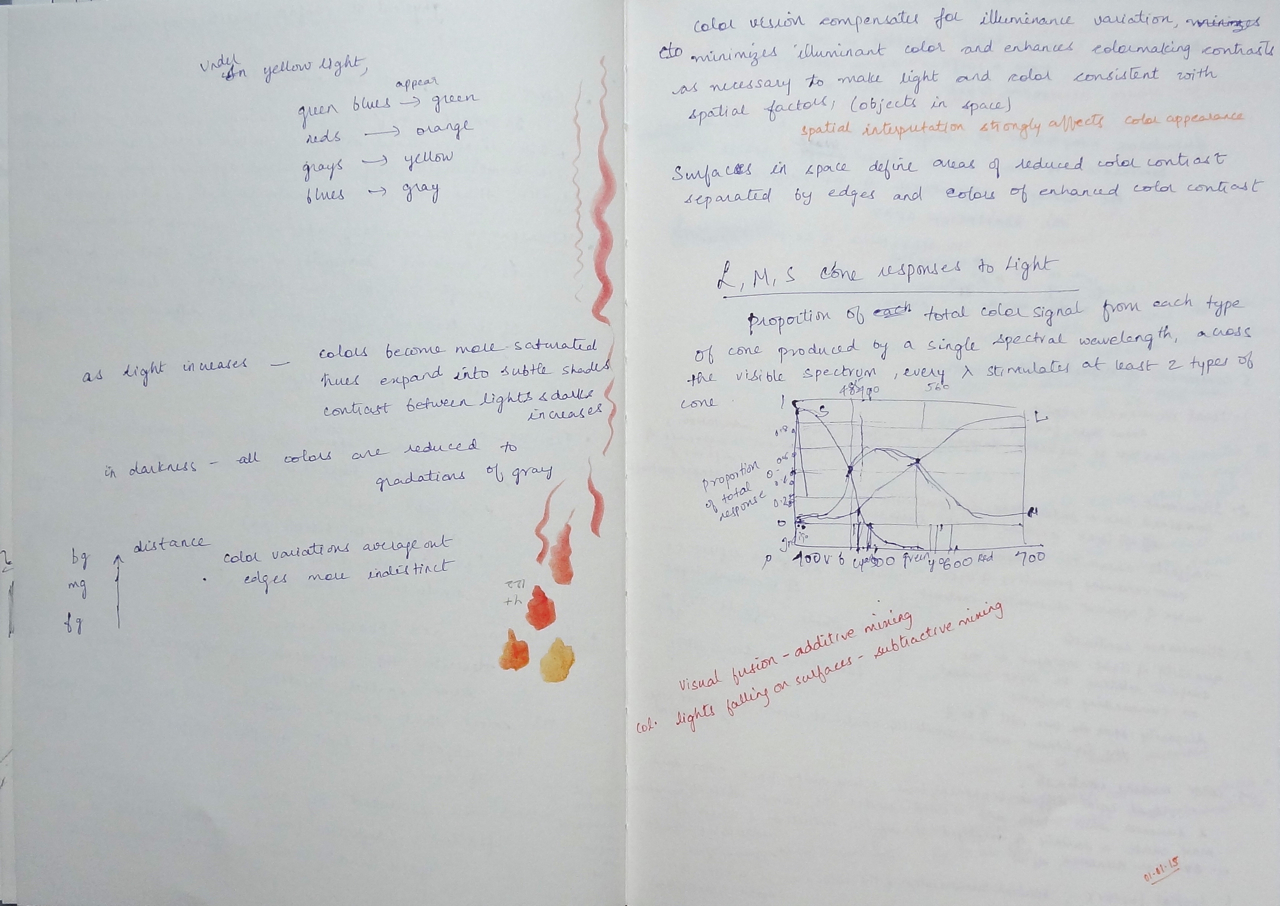 under
yellow light,
appear
green blues → green
reds → orange
grays → yellow
blues → gray
as light increases — colors become more saturated
hues expand into subtle shades
contrast between lights & darks
increases
in darkness - all colors are reduced to
gradations of gray
bg
mg
fg
distance
color variations average out
edges more indistinct
color vision compensates for illuminance variation,
minimizes illuminant color and enhances colormaking contrasts
as necessary to make light and color consistent with
spatial factors, (objects in space)
spatial interpretation strongly affects color appearance
Surfaces in space define areas of reduced color contrast
separated by edges and colors of enhanced color contrast
L, M, S cone responses to light
proportion of total color signal from each type
of cone produced by a single spectral wavelength, across
the visible spectrum, every λ stimulates at least 2 types of
cone
485 490 560
1
S
L
0.8
proportion
of total
response
0.2
0
M
400 v b 500 green y o 600 Red 700
visual fusion - additive mixing
col. lights falling on surfaces - subtractive mixing
01.01.15